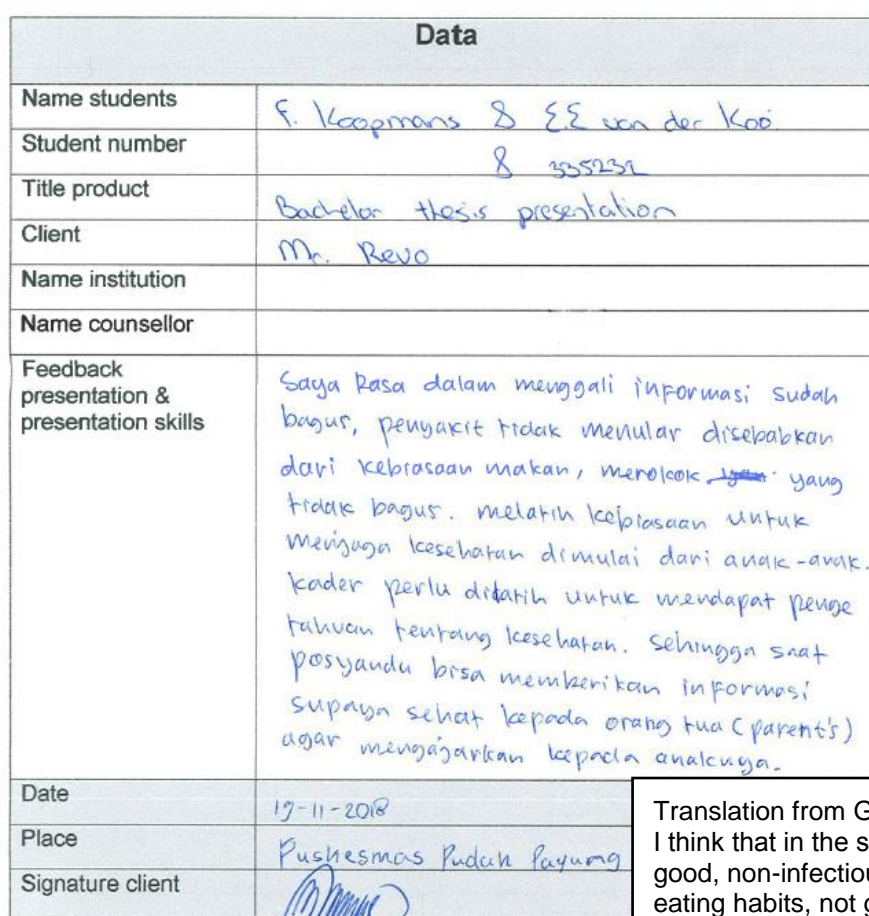 Data
Name students F. Koopmans & E.E van der Kooi
Student number & 335232
Title product Bachelor thesis presentation
Client Mr. Revo
Name institution
Name counsellor
Feedback
presentation &
presentation skills
Saya Rasa dalam menggali informasi sudah
bagus, penyakit tidak menular disebabkan
dari kebiasaan makan, merokok yang
tidak bagus. melatih kebiasaan untuk
menjaga kesehatan dimulai dari anak-anak.
kader perlu dilatih untuk mendapat penge
tahuan tentang kesehatan. Sehingga saat
posyandu bisa memberikan informasi
supaya sehat kepada orang tua (parent's)
agar mengajarkan kepada anaknya.
Date -11-2018
Place Puskesmas Pudak Payung
Signature client
Translation from G
I think that in the s
good, non-infectiou
eating habits, not g